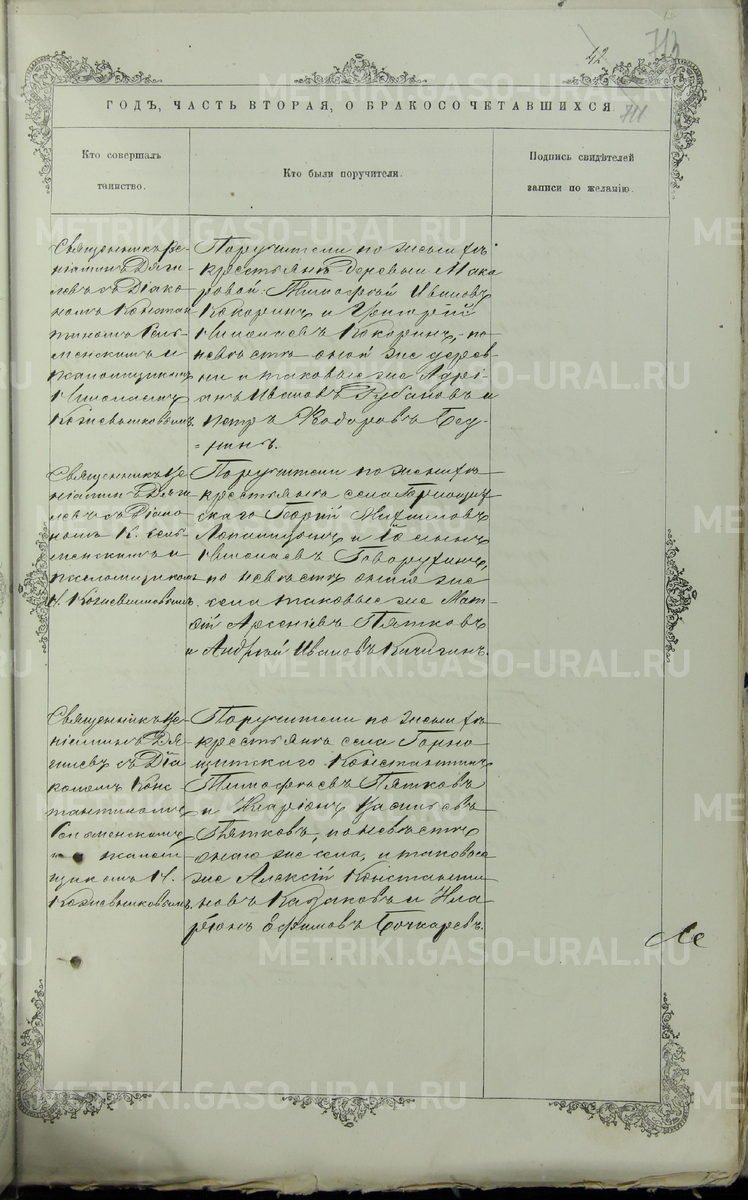 42
713
711
ГОДЪ, ЧАСТЬ ВТОРАЯ, О БРАКОСОЧЕТАВШИХСЯ
Кто совершалъ
таинство.
Кто были поручители.
Подпись свидѣтелей
записи по желанію.
Священникъ Ве-
ніаминъ Дяги-
левъ съ Діако-
номъ Констан
тиномъ Сель-
менскимъ и
псаломщикомъ
Николаемъ
Кожевниковымъ.
Поручители по женихѣ
крестьяне деревни Мака
ровой Тимофей Ивановъ
Кокоринъ и Григорій
Николаевъ Кокоринъ, по
невѣстѣ оной же дерев
ни и таковые же Адрі-
анъ Ивановъ Рубановъ и
Петръ Ѳедоровъ
Священникъ Ве-
ніаминъ Дяги
левъ съ Діако
номъ К. Сель-
менскимъ и
псаломщикомъ
Н. Кожевниковымъ.
Поручители по женихѣ
крестьяне села Горнощит
скаго Георгій Михаиловъ
и
Николаевъ Говорухинъ,
по невѣстѣ онаго же
села таковые же Мат-
ѳій Арсеніевъ Пятковъ
и Андрей Ивановъ Кичигинъ.
Священникъ Ве-
ніаминъ Дя-
гилевъ съ Діа
кономъ Конс
тантиномъ
Сельменскимъ
и псалом
щикомъ Н.
Кожевниковымъ.
Поручители по женихѣ
крестьяне села Горно
щитскаго Константинъ
Тимофеевъ Пятковъ
и Иларіонъ Васильевъ
Пятковъ, по невѣстѣ
онаго же села, и таковые
же Алексій Константи
новъ Казаковъ и Ила
ріонъ Ефимовъ Бочкаревъ.
METRIKI.GASO-URAL.RU